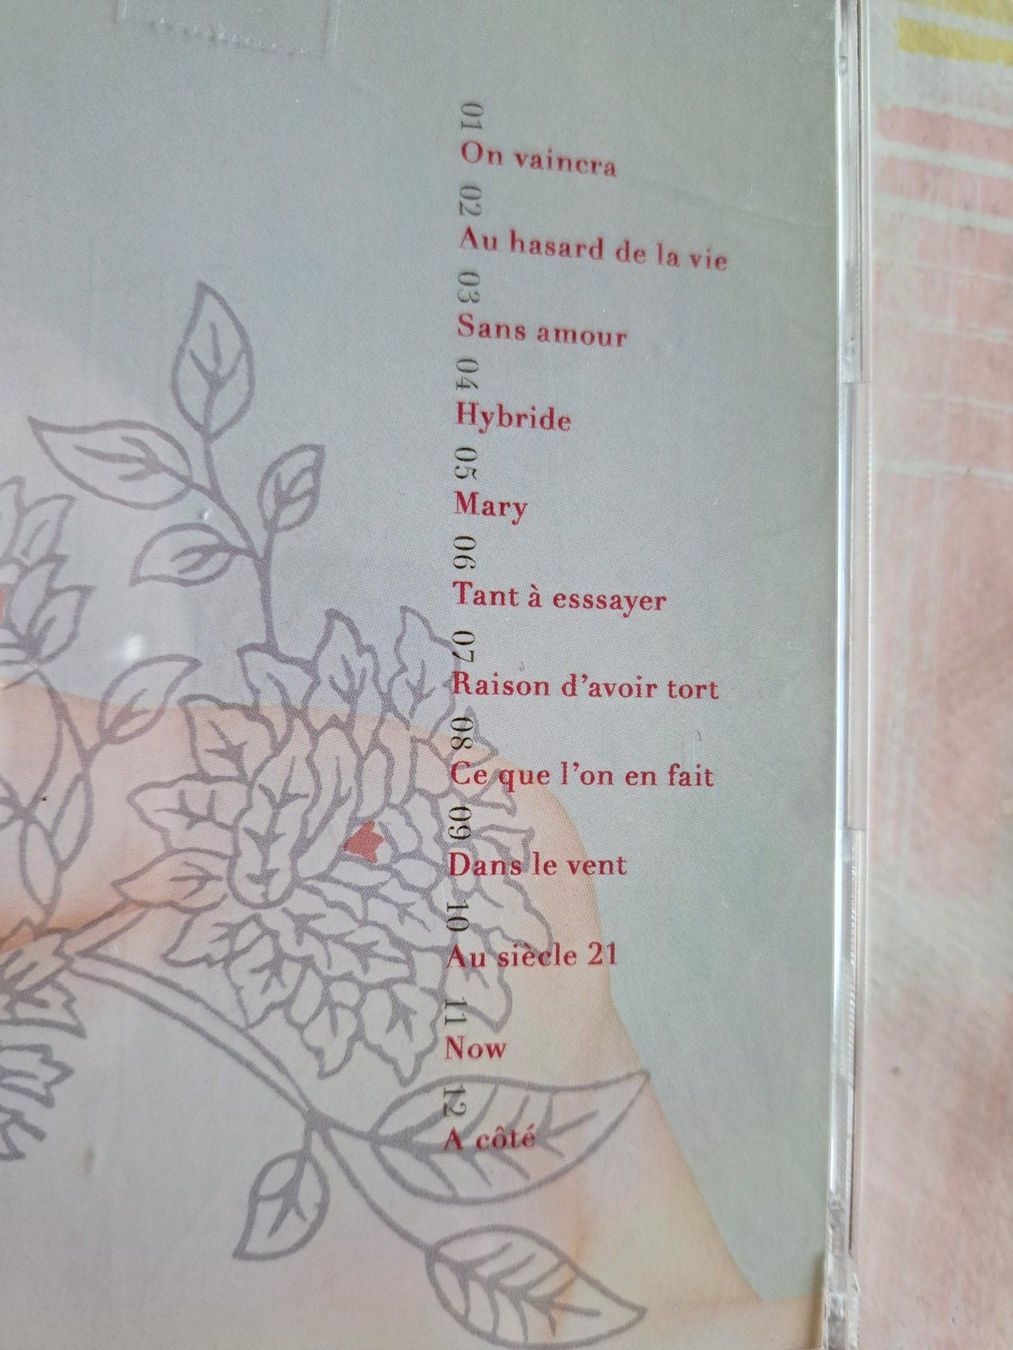 01
On vaincra
02
Au hasard de la vie
03
Sans amour
04
Hybride
05
Mary
06
Tant à esssayer
07
Raison d’avoir tort
08
Ce que l’on en fait
09
Dans le vent
10
Au siècle 21
11
Now
12
A côté